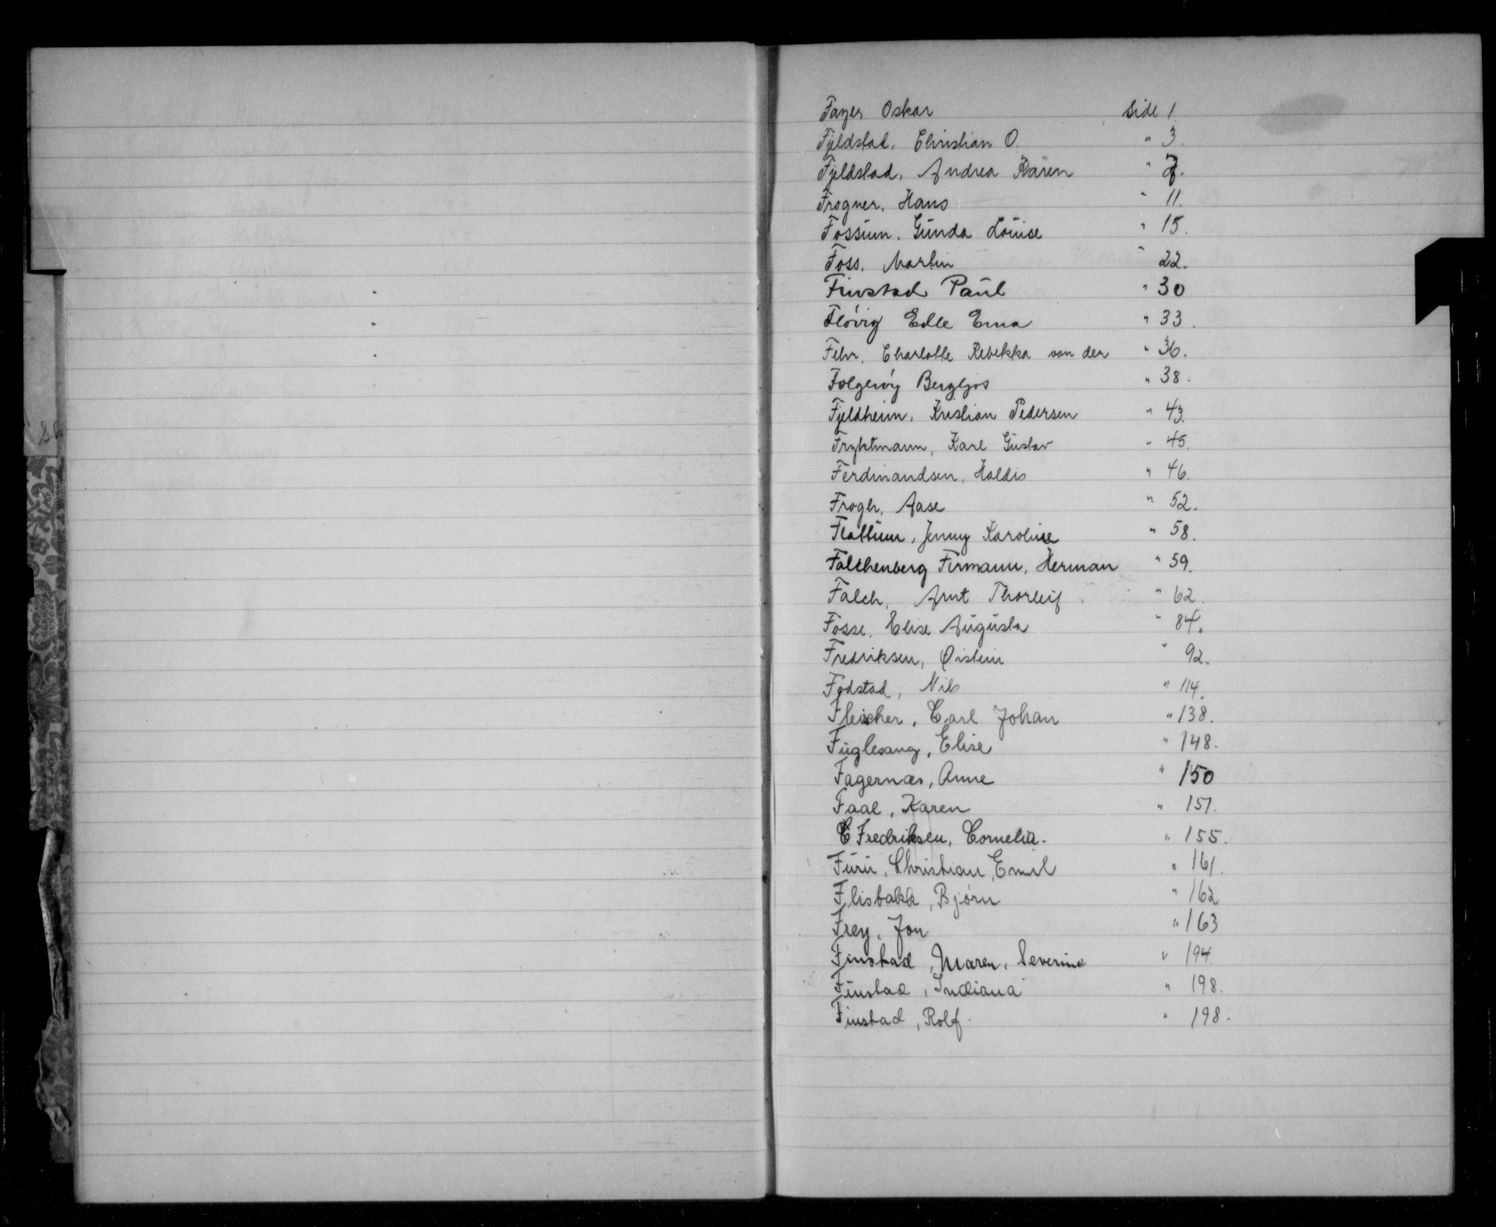 Fayer Oskar Side 1.
Fjeldstad, Christian O. " 3.
Fjeldstad, Andrea Karen " 7.
Frogner, Hans " 11.
Fossum, Gunda Louise " 15.
Foss, Martin " 22.
Finstad Paul " 30
Fløvig Edle Erna " 33.
Fehr, Charlotte Rebekka von der " 36.
Folgerøy Bergljos " 38.
Fjeldheim, Kristian Pedersen " 43.
Fryktmann, Karl Gustav " 45.
Ferdinandsen, Haldis " 46.
Frogh, Aase " 52.
Flattum, Jenny Karoline " 58.
Falchenberg Firmann, Herman " 59.
Falch, Arnt Thorleif " 62.
Fosse, Elise Augusta " 84.
Fredriksen, Øistein " 92.
Fodstad, Nils " 114.
Fleischer, Carl Johan " 138.
Fuglesang, Elise " 148.
Fagernæs, Anne " 150
Faae, Karen " 151.
C Fredriksen, Cornelia. " 155.
Furu, Christian, Emil " 161.
Flisbakk, Bjørn " 162
Frey, Jon " 163
Finstad, Maren, Severine " 194
Finstad, Indiana " 198.
Finstad, Rolf. " 198.